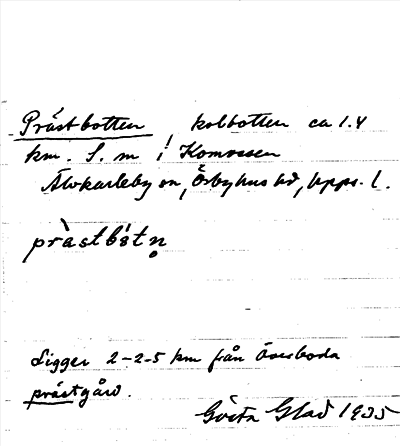 Prästbotten, kolbotten ca 1.4
km. S. om i Komossen
Älvkarleby sn, Örbyhus hd, Upps. l.
prästbòtn̥
Ligger 2-2.5 km från Överboda
prästgård.
Gösta Glad 1935